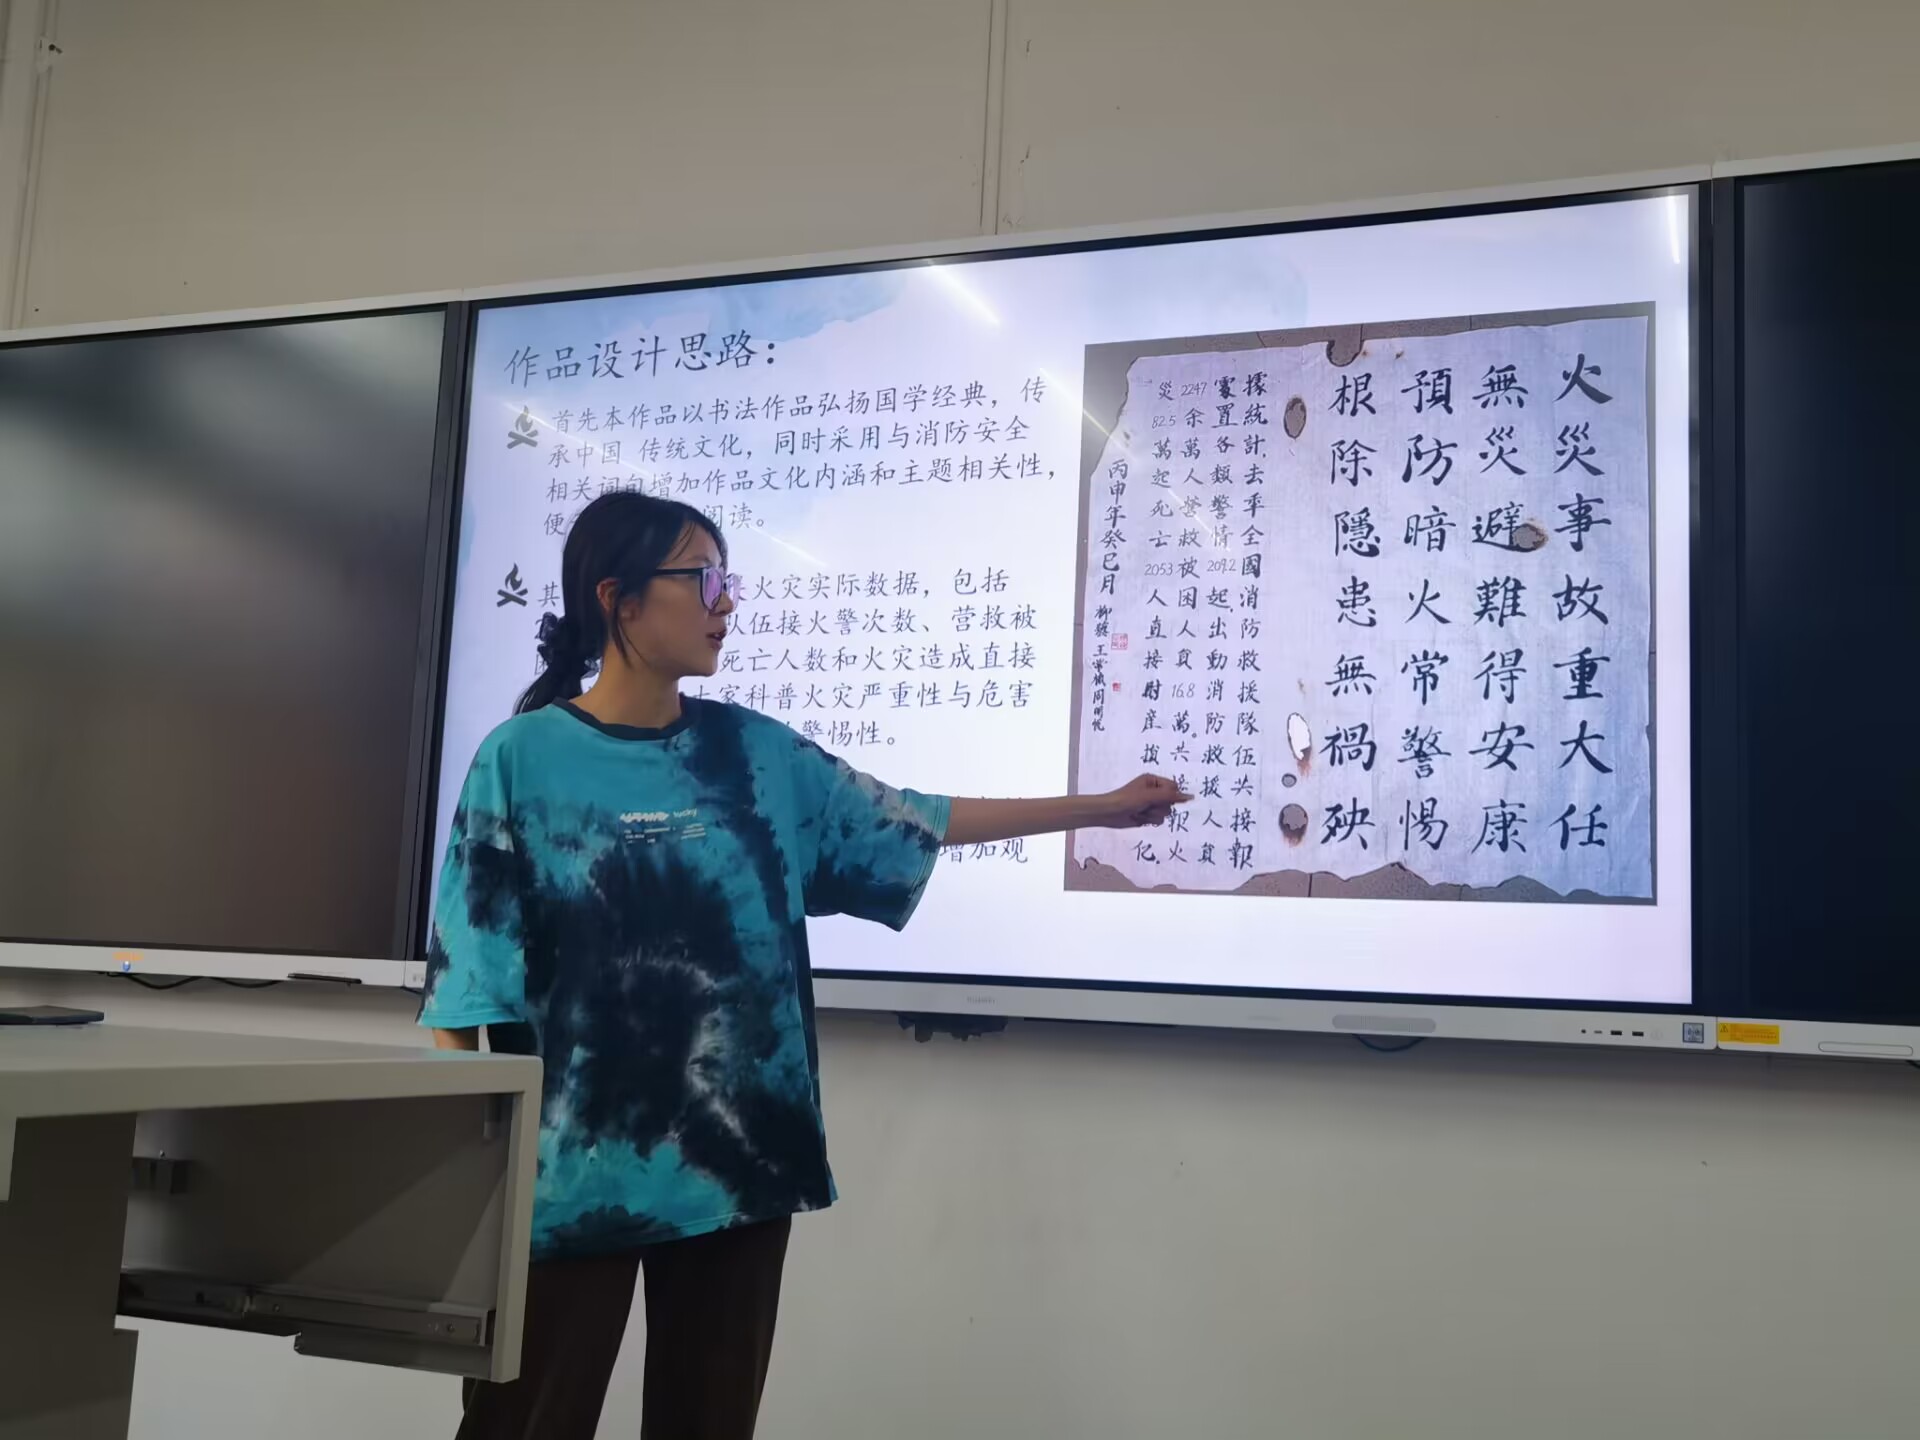 作品设计思路：
首先本作品以书法作品弘扬国学经典，传
承中国 传统文化，同时采用与消防安全
相关词句增加作品文化内涵和主题相关性，
便 阅读。
其 火灾实际数据，包括
队伍接火警次数、营救被
死亡人数和火灾造成直接
大家科普火灾严重性与危害
警惕性。
增加观
火災事故重大任
無災避難得安康
預防暗火常警惕
根除隱患無禍殃
據統計,去年全國消防救援隊伍共接報
處置各類警情209.2起,出動消防救援人員
2247余萬人營救被困人員16.8萬。共接報火
災82.5萬起死亡2053人直接財産損 亿.
丙申年癸巳月
lucky